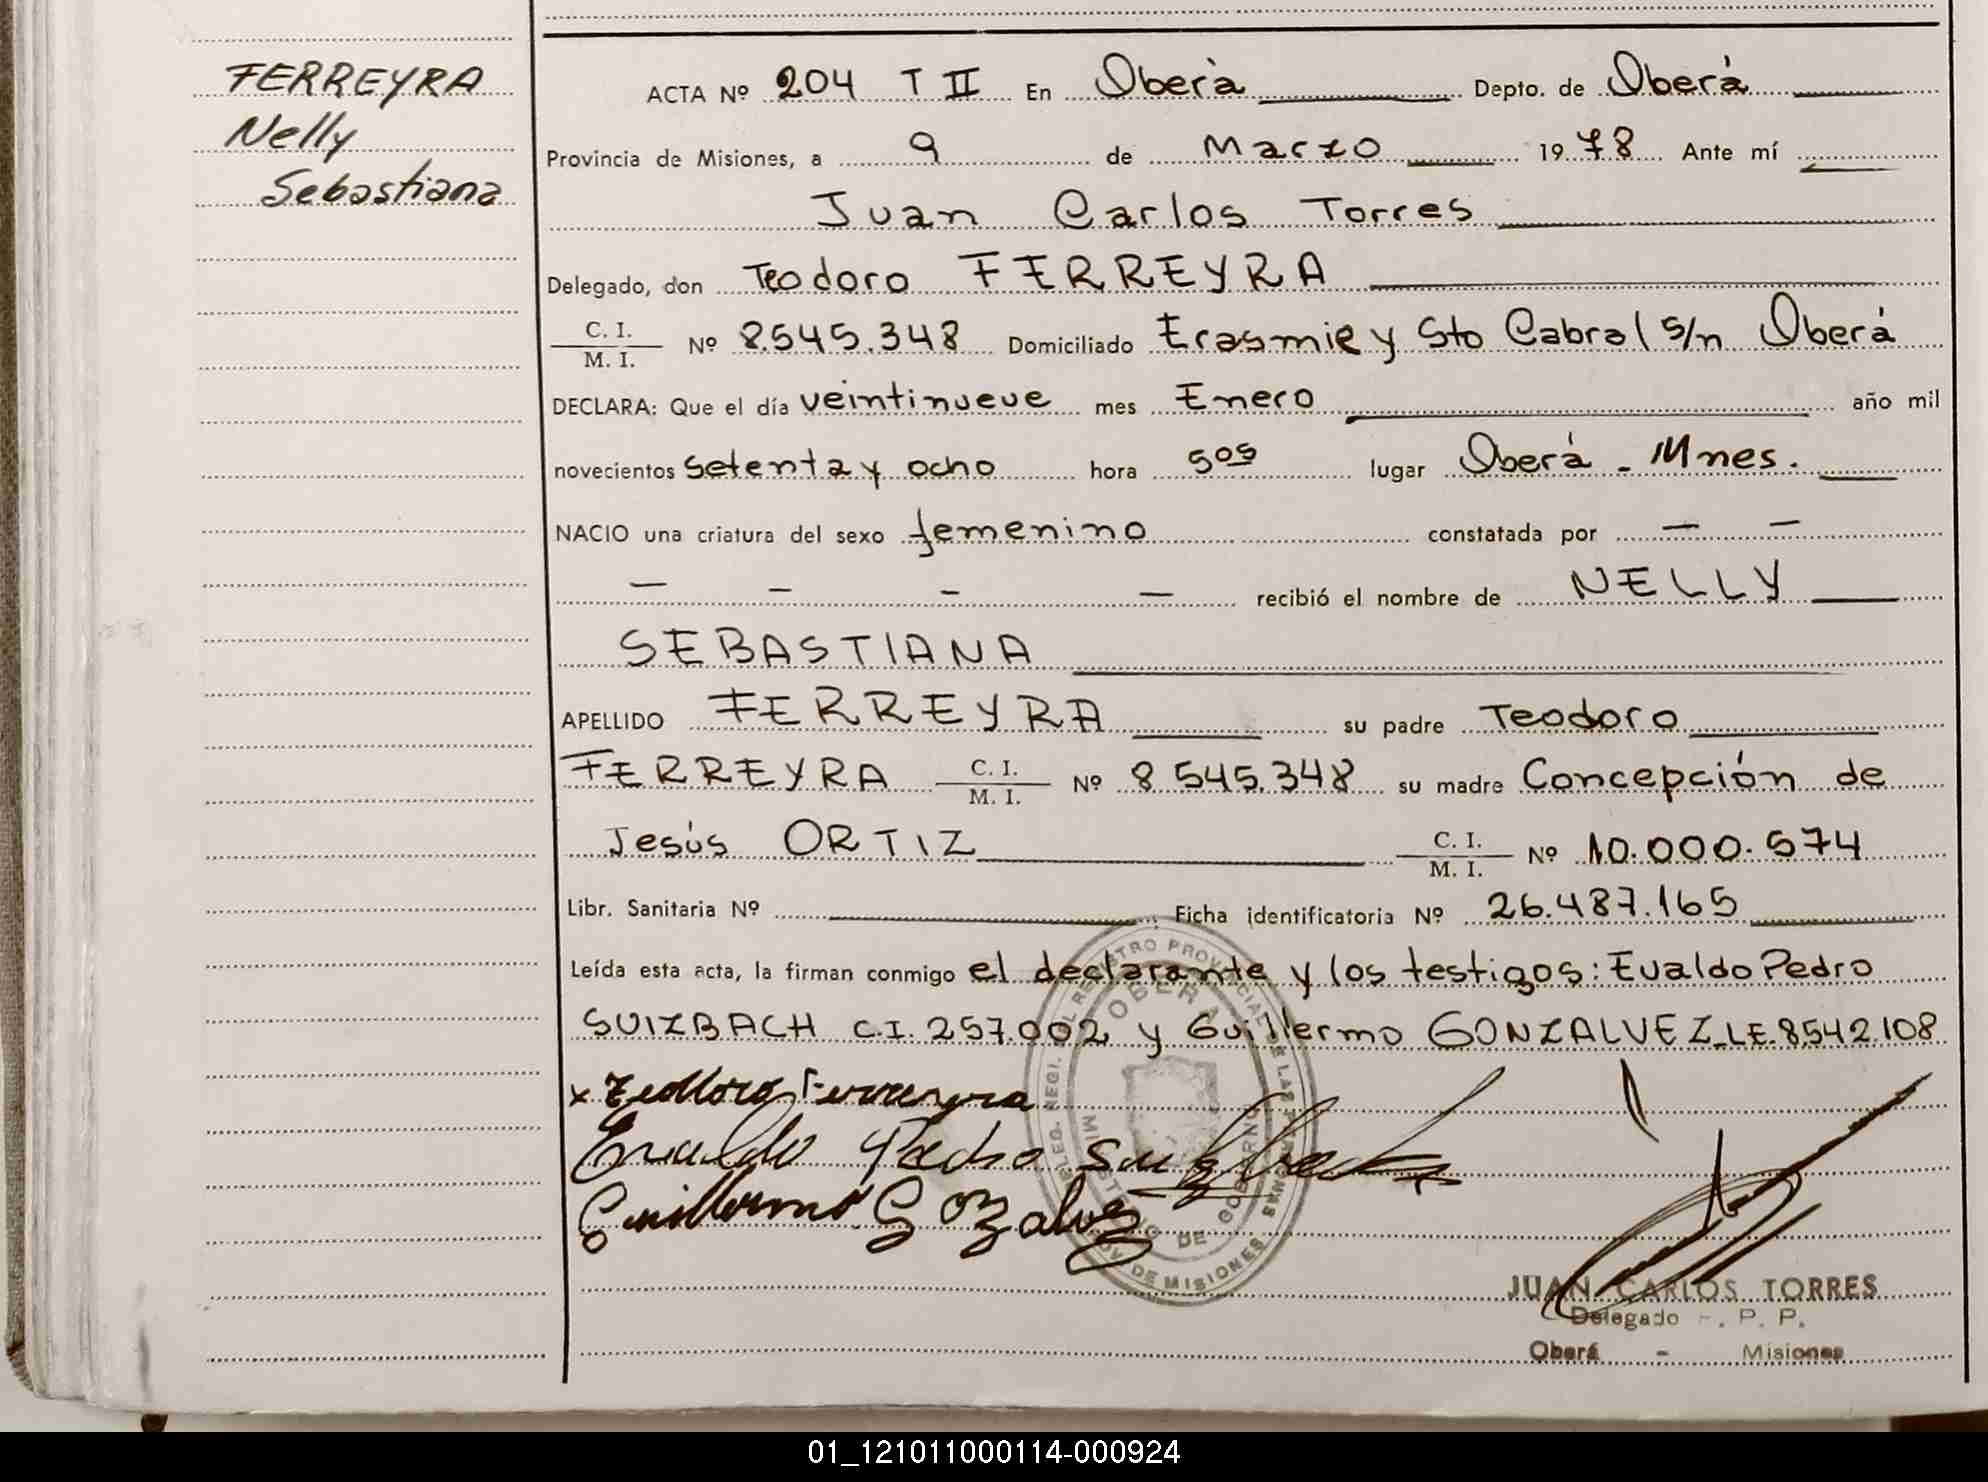 FERREYRA
Nelly
Sebastiana
ACTA Nº 204 T II En Oberà Depto. de Oberá
Provincia de Misiones, a 9 de Marzo 1978 Ante mí
Juan Carlos Torres
Delegado, don Teodoro FERREYRA
C. I. / M. I. Nº 8.545.348 Domiciliado Erasmie y Sto Cabral s/n Oberá
DECLARA: Que el día veintinueve mes Enero año mil
novecientos setenta y ocho hora 5 05 lugar Oberá - Mnes.
NACIO una criatura del sexo femenino constatada por — —
— — — — recibió el nombre de NELLY
SEBASTIANA
APELLIDO FERREYRA su padre Teodoro
FERREYRA C. I. / M. I. Nº 8 545.348 su madre Concepción de
Jesús ORTIZ C. I. / M. I. Nº 10.000.574
Libr. Sanitaria Nº Ficha identificatoria Nº 26.487.165
Leída esta acta, la firman conmigo el declarante y los testigos: Evaldo Pedro
SUIZBACH C.I. 257.002 y Guillermo GONZALVEZ_LE.8.542.108
x Teodoro Ferreyra
Evaldo Pedro
Guillermo Gozalvez
OBERA
MINISTERIO DE GOBIERNO
PROV. DE MISIONES
JUAN CARLOS TORRES
Delegado P. P.
Oberá - Misiones
01_121011000114-000924